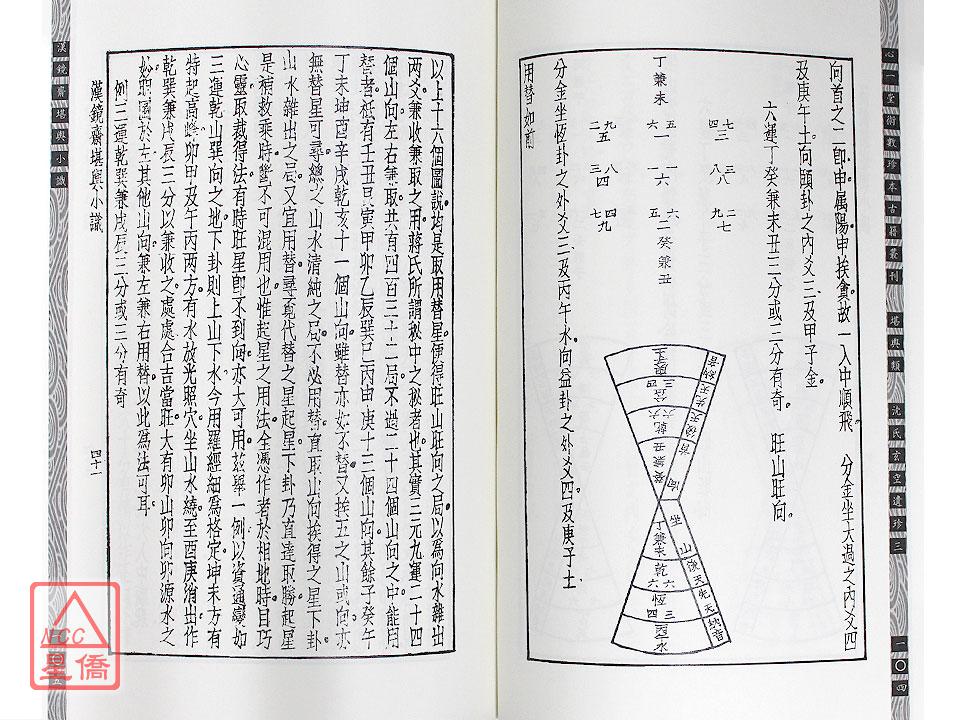 心一堂術數珍本古籍叢刊 堪輿類 沈氏玄空遺珍三
一〇四
向首之二即申屬陽申挨貪故一入中順飛 分金坐大過之內爻四
及庚午土向頤卦之內爻三及甲子金
六運丁癸兼未丑三分或三分有奇 旺山旺向
丁兼未
七三 五一 九五
四 六 二
三八 一六 八三
八 一 四
二七 六二 四九
九 五 七
癸兼丑
分金坐恆卦之外爻三及丙午水向益卦之外爻四及庚子土
用替如前
向 首 後天 先天 納音
癸兼丑
坐 山 後天 先天 納音
丁兼未
乾 六
恆
丙午
水
漢鏡齋堪輿小識
以上十六個圖說均是取用替星便得旺山旺向之局以為向水雜出
兩爻兼收兼取之用蔣氏所謂秘中之秘者也其實三元九運二十四
個山向左右兼取共有四百三十二局不過二十四個山向之中能用
替者祇有壬丑艮寅甲卯乙辰巽巳丙由庚十三個山向其餘子癸午
丁未坤酉辛戌乾亥十一個山向雖替亦如不替又挨五之山或向亦
無替星可尋總之山水清純之局不必用替直取山向挨得之星下卦
山水雜出之局又宜用替尋覓代替之星起星下卦乃直達取勝起星
是補救乘時斷不可混用也惟起星之用法全憑作者於相地時目巧
心靈取裁得法有時旺星即不到向亦大可用茲舉一例以資通變如
三運乾山巽向之地下卦則上山下水今用羅經細為格定坤未方有
特起高峰卯甲及午丙兩方有水放光照穴坐山水繞至酉庚消出作
乾巽兼戌辰三分以兼收之處處合吉當旺大有卯山卯向卯源水之
妙附圖於左其他山向兼左兼右用替以此為法可耳
例三運乾巽兼戌辰三分或三分有奇
漢鏡齋堪輿小識
四十一
NCC
星僑